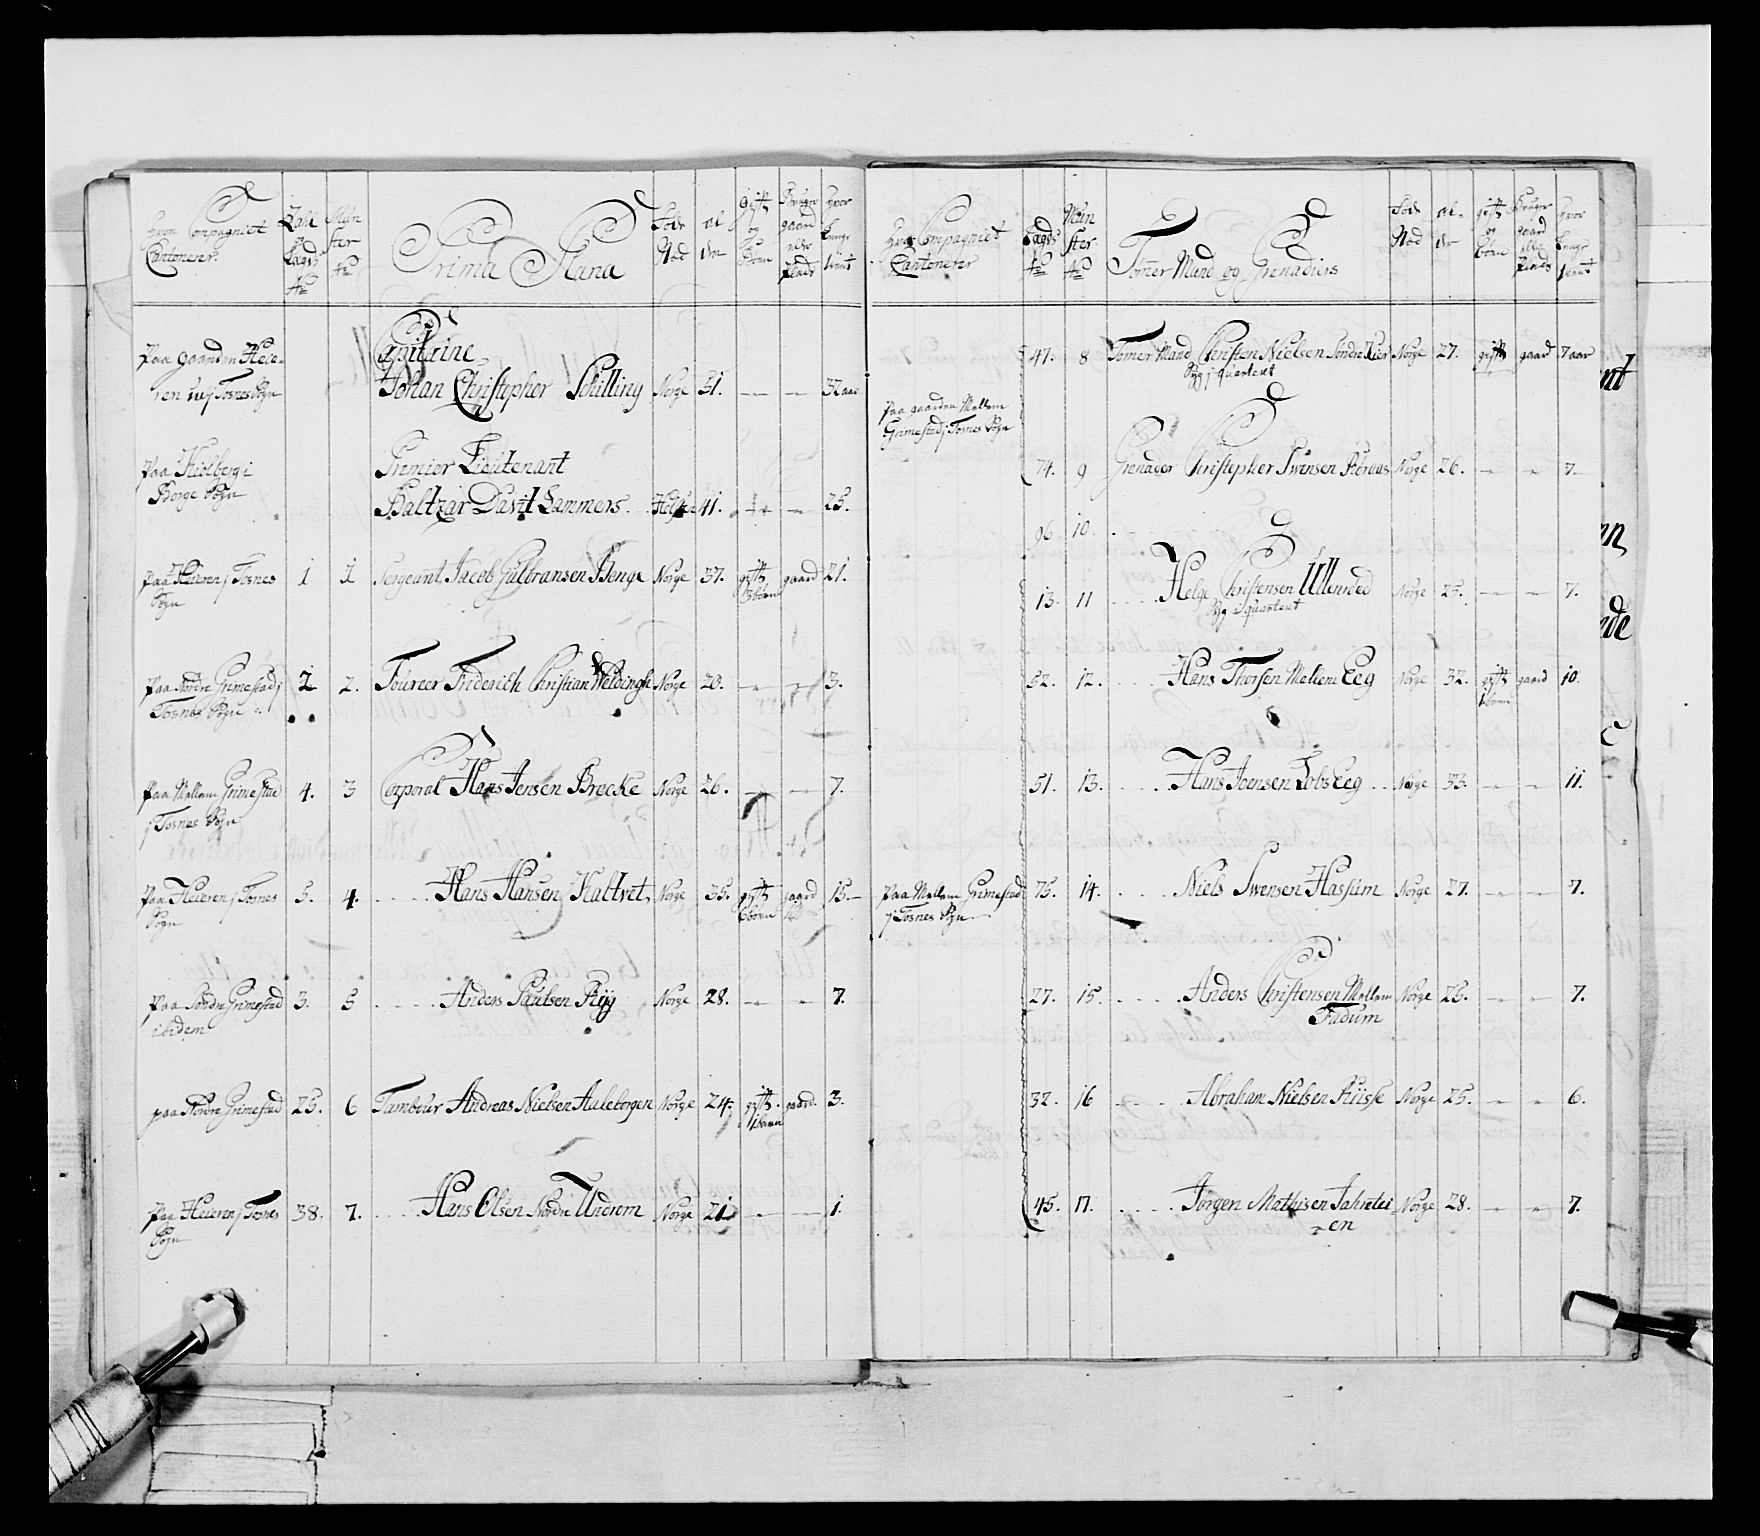 Hvor Compagniet Cantonerer. | Lægds No | Mynster No | Prima Plana | Føde Stæd | Alder | gift og Børn | Bruger gaard eller Plads | Hvor Længe tient
Paa gaarden Heie-
ren i Tosnes Sogn
Capitaine
Johan Christopher Schilling | Norge | 51. | — | — | 32 aar
Paa Kiølberg i
Borge Sogn
Premier Lieutenant
Baltzar David Lammers | Holsten | 41. | — | — | 25.
Paa Heieren j Tosnes
Sogn | 1 | 1 | Sergeant Jacob Gulbransen Benge | Norge | 37. | gift 3 børn | gaard | 21.
paa Nordre Grimestad j
Tosnes Sogn | 2 | 2. | Foureer Friderich Christian Weldingh | Norge | 20. | — | — | 3.
paa Mellem Grimestad
j Tosnes Sogn | 4. | 3 | Corporal Hans Jensen Brecke | Norge | 26. | — | — | 7.
Paa Heieren j Tosnes
Sogn | 5. | 4. | Hans Hansen Kaltvet | Norge | 35. | gift børn | gaard | 15.
paa Søndre Grimestad
ibidem | 3. | 5 | Anders Paulsen Ryg | Norge | 28. | — | — | 7.
paa Nordre Grimestad | 25. | 6 | Tambour Andreas Nielsen Auleborgen | Norge | 24. | gift 1 børn | gaard. | 3.
Paa Heieren j Tosnes
Sogn | 38. | 7. | Hans Olsen Nordre Undrem | Norge | 21 | — | — | 1.
Hvor Compagniet Cantonerer | Lægds No | Mynster No | Tømer Mand og Grenadiers | Føde Stæd | Alder | gift og børn | Bruger gaard eller Plads | Hvor Længe tient
47. | 8 | Tømer Mand Christen Nielsen Søndre Kier | Norge | 27. | gift | gaard | 7 aar
Syg j quarteret
Paa gaarden Mellem
Grimestad j Tosnes Sogn
74. | 9 | Grenader Christopher Svensen | Norge | 26. | — | — | 7.
96 | 10.
13. | 11 | Helge Christensen Ullerøed | Norge | 25. | — | — | 7.
Syg i quarteret
52. | 12. | Hans Thorsen Mellem Eeg | Norge | 32. | gift børn | gaard | 10.
51. | 13. | Hans Joensen Lobs Eeg | Norge | 33. | — | — | 11.
Paa Mellem Grimestad
j Tosnes Sogn | 75. | 14. | Niels Svensen Hassum | Norge | 27. | — | — | 7.
27. | 15. | Anders Christensen Mellem | Norge | 25. | — | — | 7.
Fadum
32. | 16 | Abraham Nielsen Riisse | Norge | 25. | — | — | 6.
45. | 17. | Jørgen Mathisen | Norge | 28. | — | — | 7.
en